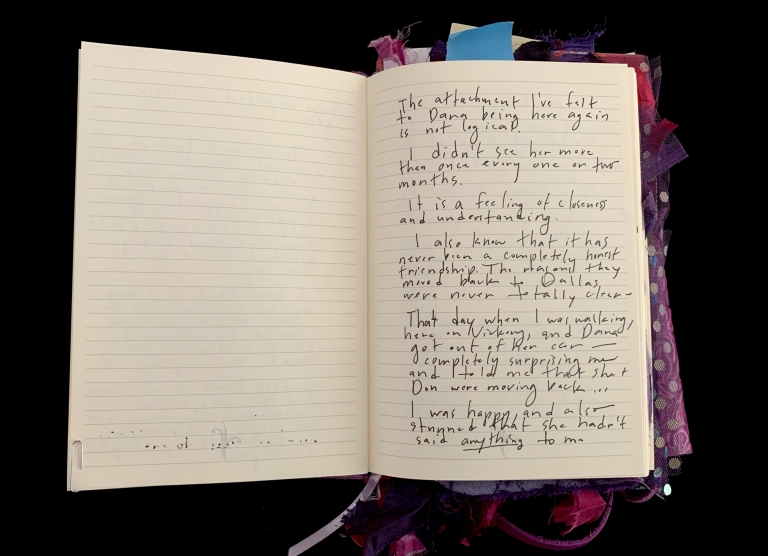 The attachment I've felt
to Dana being here again
is not logical.
I didn't see her more
than once every one or two
months.
It is a feeling of closeness
and understanding.
I also know that it has
never been a completely honest
friendship. The reasons they
moved back to Dallas
were never totally clear—
That day when I was walking,
here on Vickery, and Dana,
got out of her car —
completely surprising me
and told me that she &
Don were moving back...
I was happy, and also
stunned that she hadn't
said anything to me